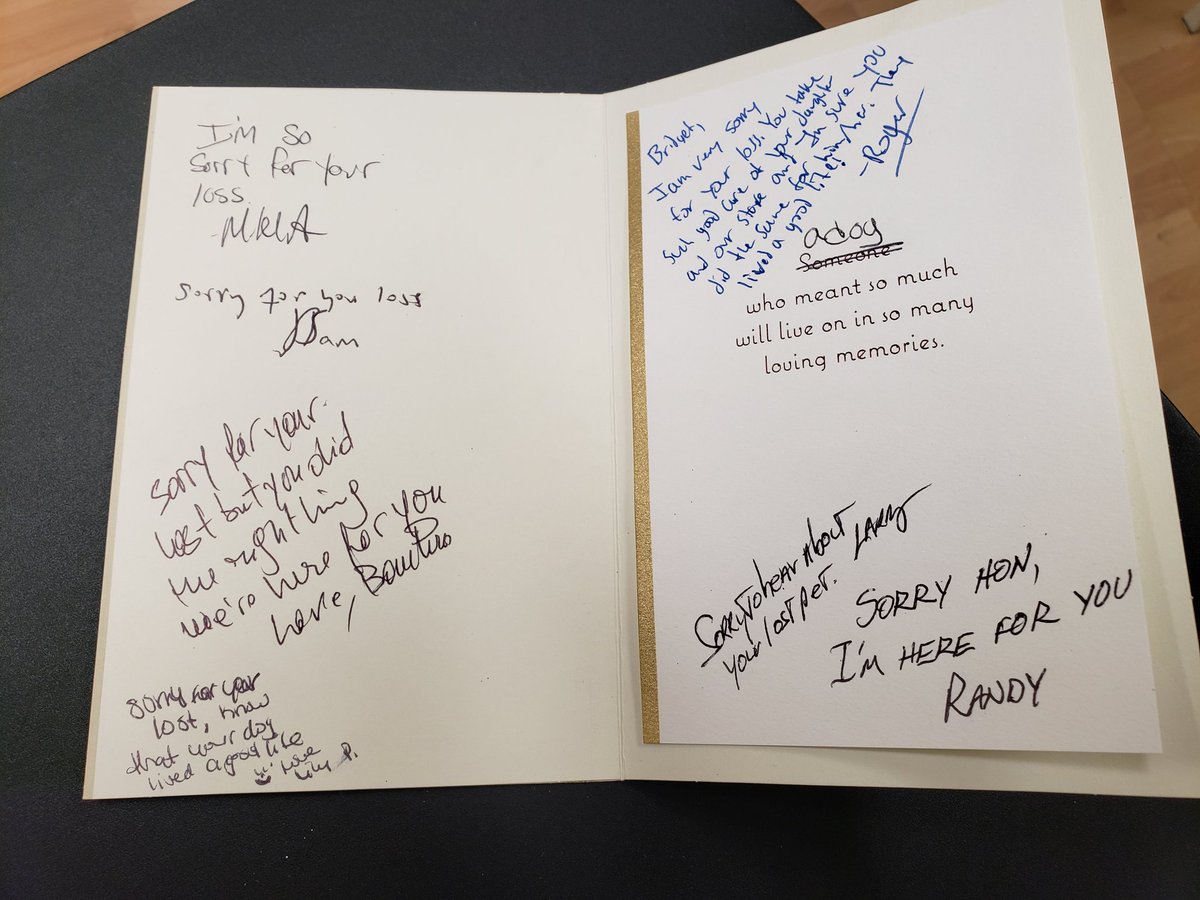 I'm so
sorry for your
loss.
-MKIA
sorry for you loss
Sam
sorry for your
lost but you did
the right thing
we're here for you
love,
sorry for your
lost, know
that your dog
lived a good life
love
Lily P.
Bridget,
I am very sorry
for your loss. You take
such good care of your daughter
and our store and I'm sure you
did the same for him/her. They
lived a good life!
-Roger
a dog
Someone
who meant so much
will live on in so many
loving memories.
Sorry to hear about
your lost pet. LARRY
SORRY HON,
I'M HERE FOR YOU
RANDY